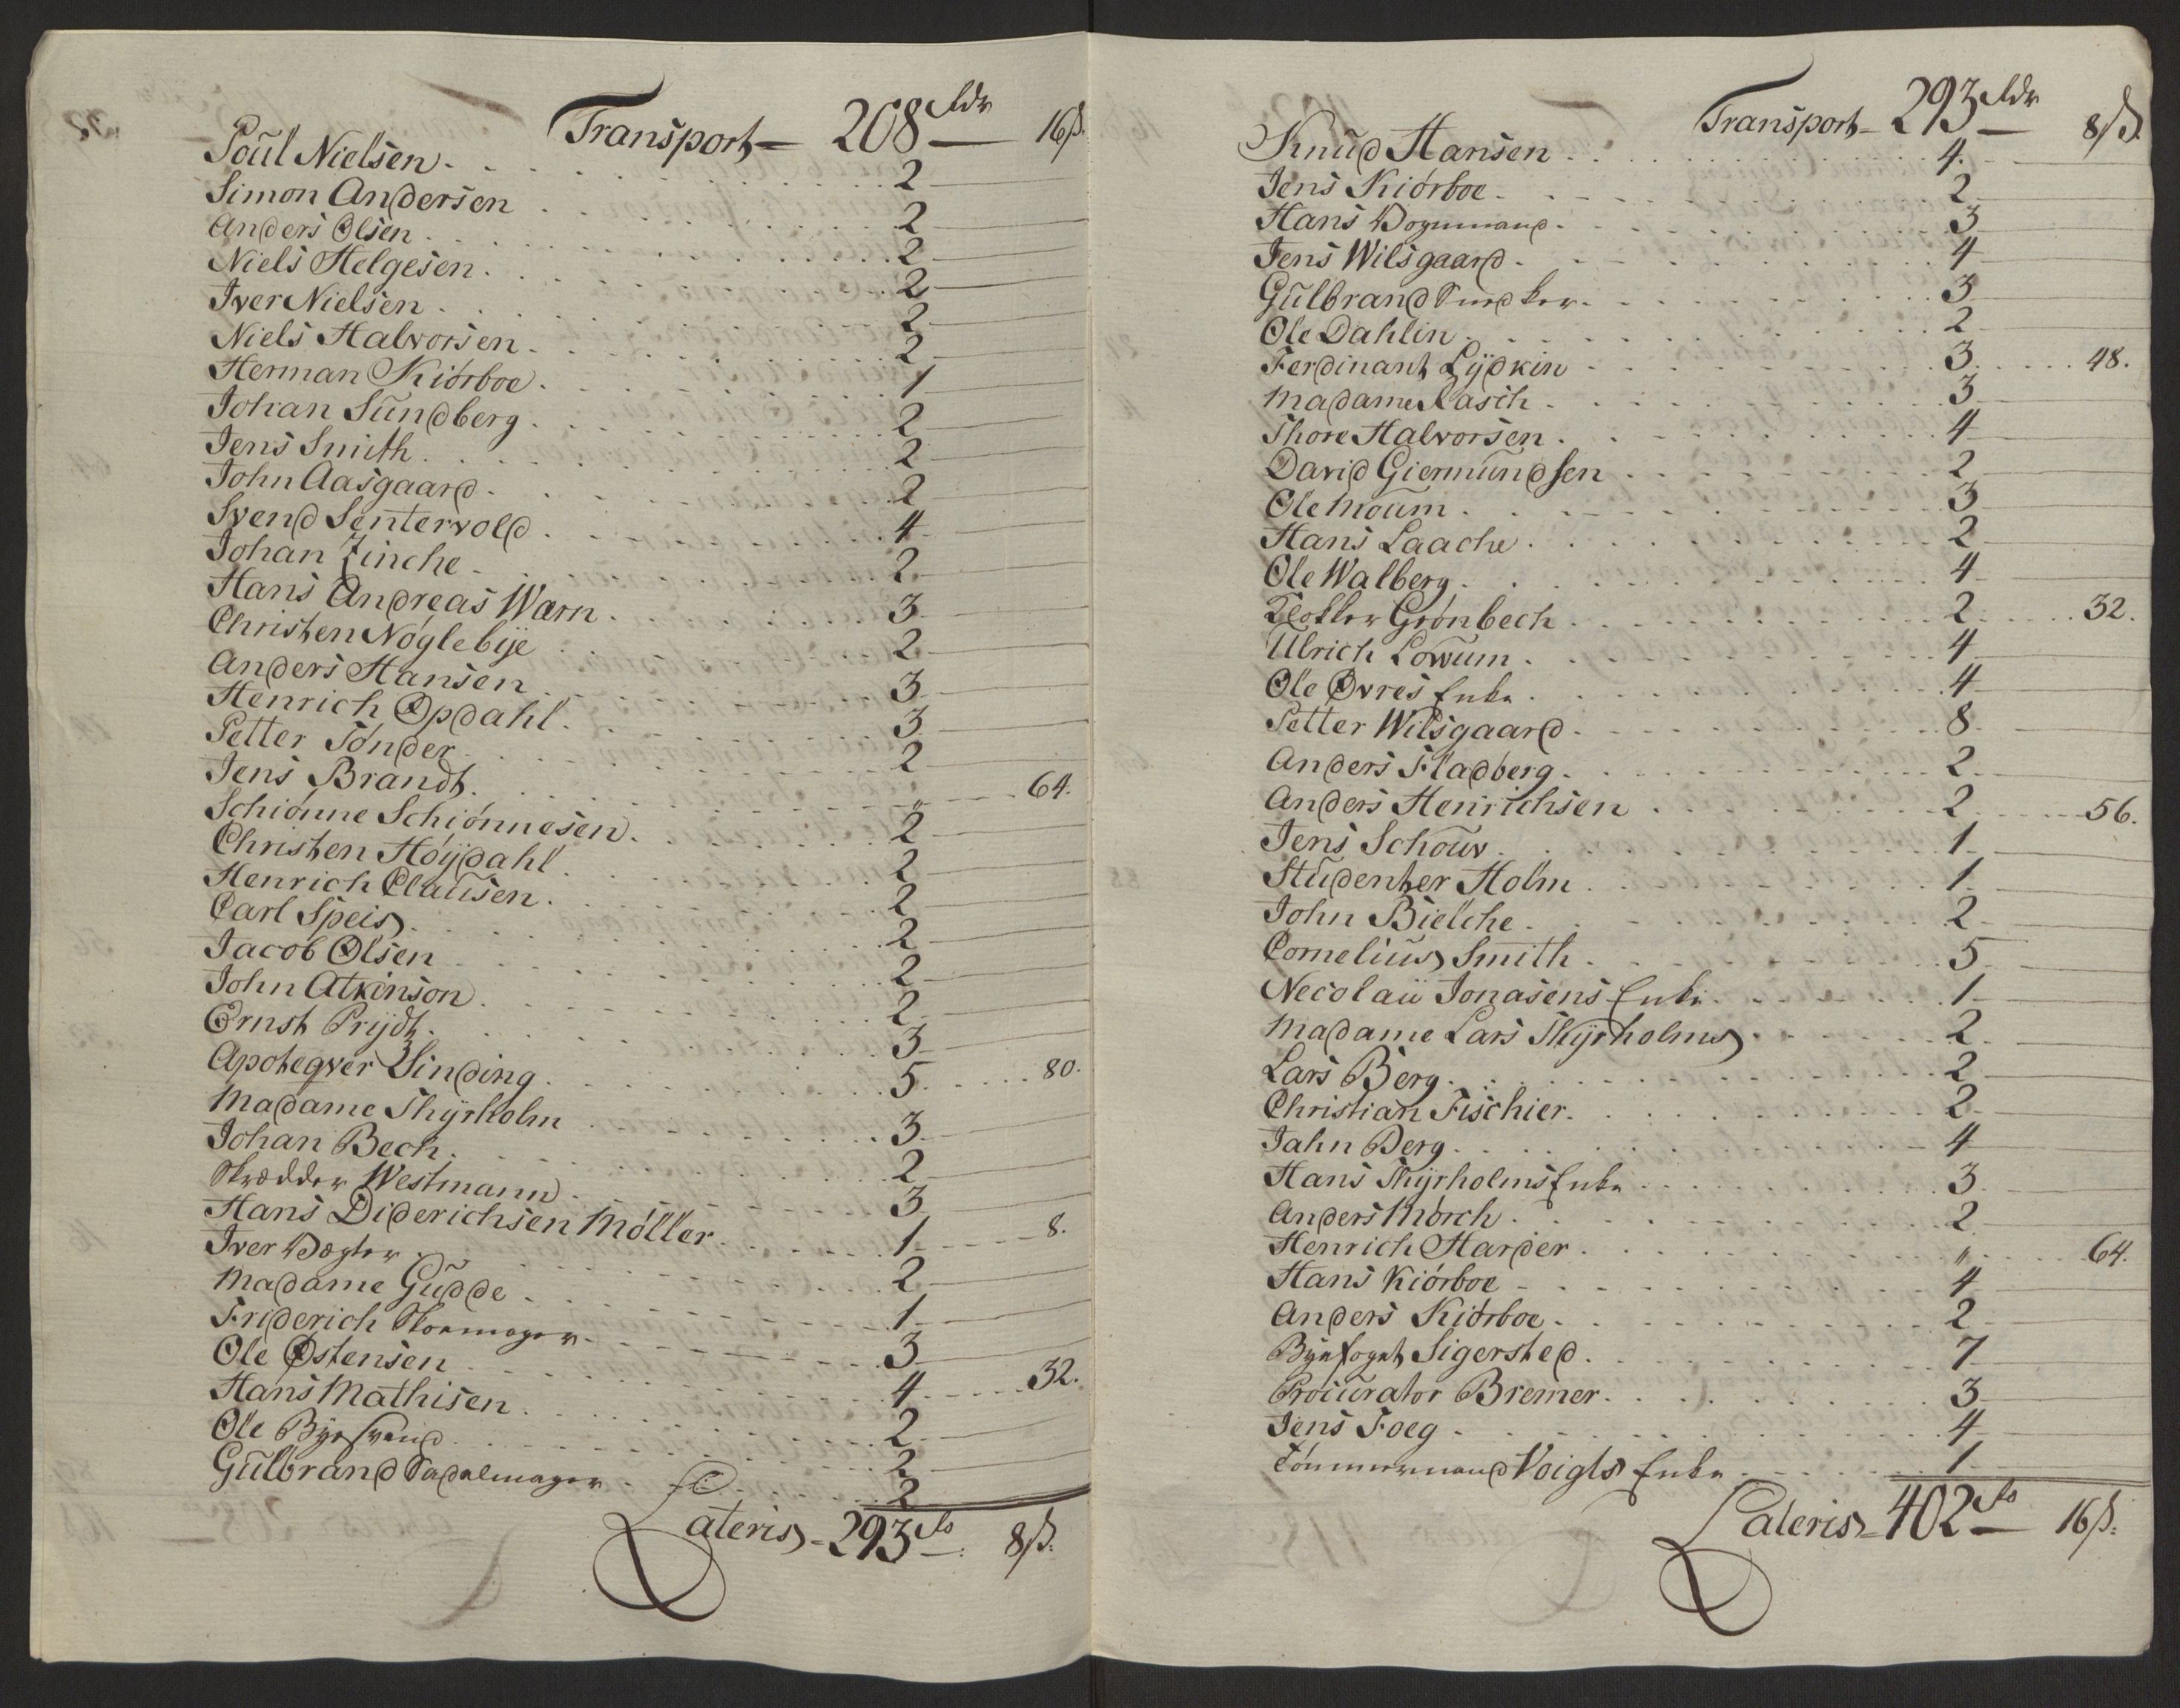 Transport - 208 Rdr — 16 ß.
Poul Nielsen . . . 2
Simon Andersen . . . 2
Anders Olsen . . . 2
Niels Helgesen . . . 2
Iver Nielsen . . . 2
Niels Halvorsen . . . 2
Herman Kiörboe . . . 1
Johan Sundberg . . . 2
Jens Smith . . . 2
John Aasgaard . . . 2
Svend Sentervold . . . 4
Johan Zinche . . . 2
Hans Andreas Wærn . . . 3
Christen Nöglebÿe . . . 2
Anders Hansen . . . 3
Henrich Opdahl . . . 3
Petter Tönder . . . 2
Jens Brandt . . . " . . . 64.
Schiönne Schiönnesen . . . 2
Christen Höÿdahl . . . 2
Henrich Clausen . . . 2
Carl Speis . . . 2
Jacob Olsen . . . 2
John Atkinson . . . 2
Ernst Prÿdt . . . 3
Apoteqver Sinding . . . 5 . . . 80.
Madame Thÿrholm . . . 3
Johan Bech . . . 2
Skrædder Westmann . . . 3
Hans Diderichsen Möller . . . 1 . . . 8.
Iver Vægter . . . 2
Madame Gudde . . . 1
Friderich Skoemager . . . 3
Ole Østensen . . . 4 . . . 32.
Hans Mathisen . . . 2
Ole Byesvend . . . 2
Gulbrand Sadelmager . . . 2
Lateris - 293 Rd 8 ß.
Transport - 293 Rdr — 8 ß.
Knud Hansen . . . 4
Jens Kiörboe . . . 2
Hans Vognmand . . . 3
Jens Wilsgaard . . . 4
Gulbrand Snedker . . . 3
Ole Dahlin . . . 2
Ferdinant Lÿdkin . . . 3 . . . 48.
Madame Rasch . . . 3
Thore Halvorsen . . . 4
David Giermundsen . . . 2
Ole Moum . . . 3
Hans Laache . . . 2
Ole Walberg . . . 4
Klokker Grönbech . . . 2 . . . 32.
Ulrich Lowum . . . 4
Ole Øvres Enke . . . 4
Petter Wilsgaard . . . 8
Anders Fladberg . . . 2
Anders Henrichsen . . . 2 . . . 56.
Jens Schouv . . . 1
Studenter Holm . . . 1
John Bielche . . . 2
Cornelius Smith . . . 5
Necolaii Jonasens Enke . . . 1
Madame Lars Thÿrholms . . . 2
Lars Berg . . . 2
Christian Fischier . . . 2
Jahn Berg . . . 4
Hans Thÿrholms Enke . . . 3
Anders Mörch . . . 2
Henrich Harder . . . " . . . 64.
Hans Kiörboe . . . 4
Anders Kiörboe . . . 2
Byefoget Sigersted . . . 7
Procurator Bremer . . . 3
Jens Foeg . . . 4
Tömmermand Voigts Enke . . . 1
Lateris - 402 Rd — 16 ß.